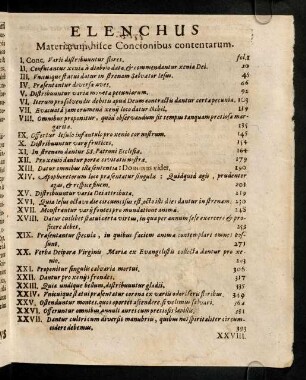 ELENCHUS
Materiarum, hisce Concionibus contentarum.
I. Conc. Varij distribuuntur flores. fol. 1
II. Confricantur xenia à diabolo data, & commendantur xenia Dei. 20
III. Vnicuique status datur in strenam Salvator Iesus. 45
IV. Præsentantur diversæ aves. 66
V. Distribuuntur varia moneta pecuniarum. 92
VI. Iterum pro solvendis debitis apud Deum contractis dantur certa pecunia. 109
VII. Evacuata jam crumenâ xenij loco datur Nihil. 119
VIII. Omnibus proponitur, quid observandum sit tempus tanquam pretiosa margarita. 135
IX. Offertur Iesulo infantulo pro xenio cor nostrum. 145
X. Distribuuntur varij frutices. 154
XI. In strenam dantur SS. Patroni Ecclesiæ. 164
XII. Pro xenio dantur porta civitatis nostræ. 179
XIII. Datur omnibus illa sententia: Dominus videt. 190
XIV. Apophoretorum loco præsentatur singulis: Quidquid agis, prudenter agas, & respice finem. 202
XV. Distribuuntur varia Dei attributa. 211
XVI. Quia Iesus octavo die circumcisus est, acto isti dies dantur in strenam. 223
XVII. Monstrantur varij fructes pro mundatione animæ. 242
XVIII. Datur cuilibet statui certa virtus, in qua per annum sese exercere & perficere debet. 253
XIX. Præsentantur specula, in quibus faciem animæ contemplari omnes possunt. 271
XX. Verba Deiparæ Virginis Mariæ ex Evangelistis collecta dantur pro xenio. 290
XXI. Proponitur singulis calvaria mortui. 306
XXII. Dantur pro xenijs frondes. 317
XXIII. Quia undique bellum, distribuuntur gladij. 333
XXIV. Vnicuique statui præsentatur corona ex varijs odoriferis floribus. 349
XXV. Ostenduntur montes, quos oportet ascendere, si velimus salvari. 365
XXVI. Offeruntur omnibus, annuli aurei cum pretiosis lapillis. 381
XXVII. Dantur cultri cum diversis manubrijs, quibus nos spiritualiter circumcidere debemus. 393
XXVIII.